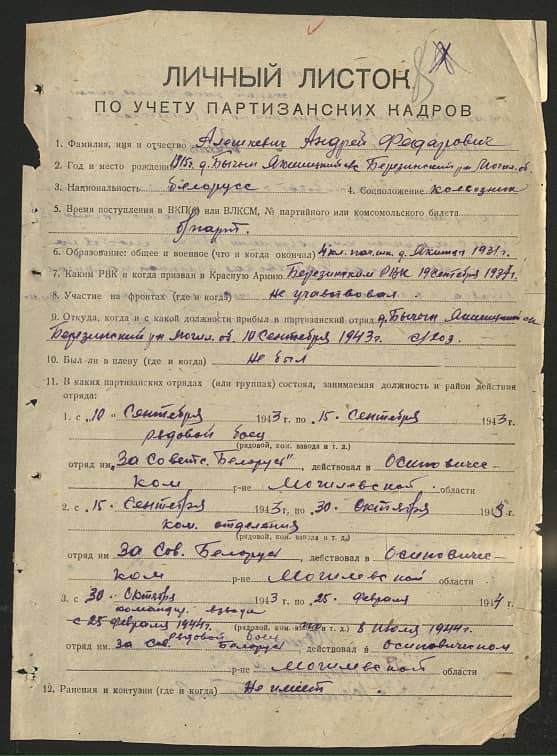 ЛИЧНЫЙ ЛИСТОК
ПО УЧЕТУ ПАРТИЗАНСКИХ КАДРОВ
1. Фамилия, имя и отчество Алешкевич Андрей Федарович
2. Год и место рождения 1915г. д. Бычын Якшицкий с/с Березинский р-н Могил. об.
3. Национальность белорусс 4. Соцположение колхозник
5. Время поступления в ВКП(б) или ВЛКСМ, № партийного или комсомольского билета
б/парт.
6. Образование: общее и военное (что и когда окончил) 4 кл. д. Якшицы 1931г.
7. Каким РВК и когда призван в Красную Армию Березинским РВК 19 сентября 1937г.
8. Участие на фронтах (где и когда) Не учавствовал.
9. Откуда, когда и с какой должности прибыл в партизанский отряд д. Бычын Якшицкий с/с
Березинский р-н Могил. об. 10 Сентября 1943г.
10. Был ли в плену (где и когда) Не был
11. В каких партизанских отрядах (или группах) состоял, занимаемая должность и район действия
отряда:
1. с „10“ Сентября 1943 г. по 15. Сентября 1943 г.
рядовой боец
(рядовой, ком. взвода и т. д.)
отряд им. „За Советс. Беларусь“, действовал в Осиповичес-
ком р-не Могилевской области
2. с „15. Сентября 1943 г. по 30. Октября 1943 г.
ком. отделения
(рядовой, ком. взвода и т. д.)
отряд им. За Сов. Беларусь, действовал в Осиповичес-
ком р-не Могилевской области
3. с 30. Октября 1943 г. по 25. февраля 1944 г.
командир взвода
с 25 февраля 1944г. (рядовой, ком. взвода и т. д.) 8 Июля 1944г.
рядовой боец
отряд им. За Сов. Беларусь действовал в Осиповичском
р-не Могилевской области
12. Ранения и контузии (где и когда) Не имеет.